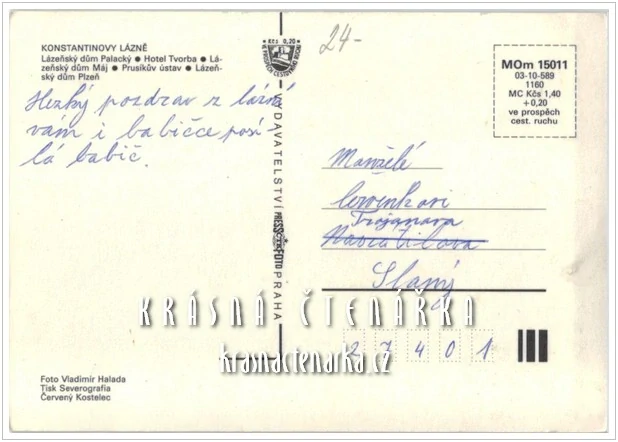 KONSTANTINOVY LÁZNĚ
Lázeňský dům Palacký ● Hotel Tvorba ● Lá-
zeňský dům Máj ● Prusíkův ústav ● Lázeň-
ský dům Plzeň
Hezký pozdrav z lázní
vám i babičce posí-
lá babič.
Kčs 0,20
VYDAVATELSTVÍ PRESSFOTO PRAHA
24-
MOm 15011
03-10-589
1160
MC Kčs 1,40
+0,20
ve prospěch
cest. ruchu
Manželé
Červenkovi
Trojanova
Slaný
27401
KRÁSNÁ ČTENÁŘKA
krasnactenarka.cz
Foto Vladimír Halada
Tisk Severografia
Červený Kostelec